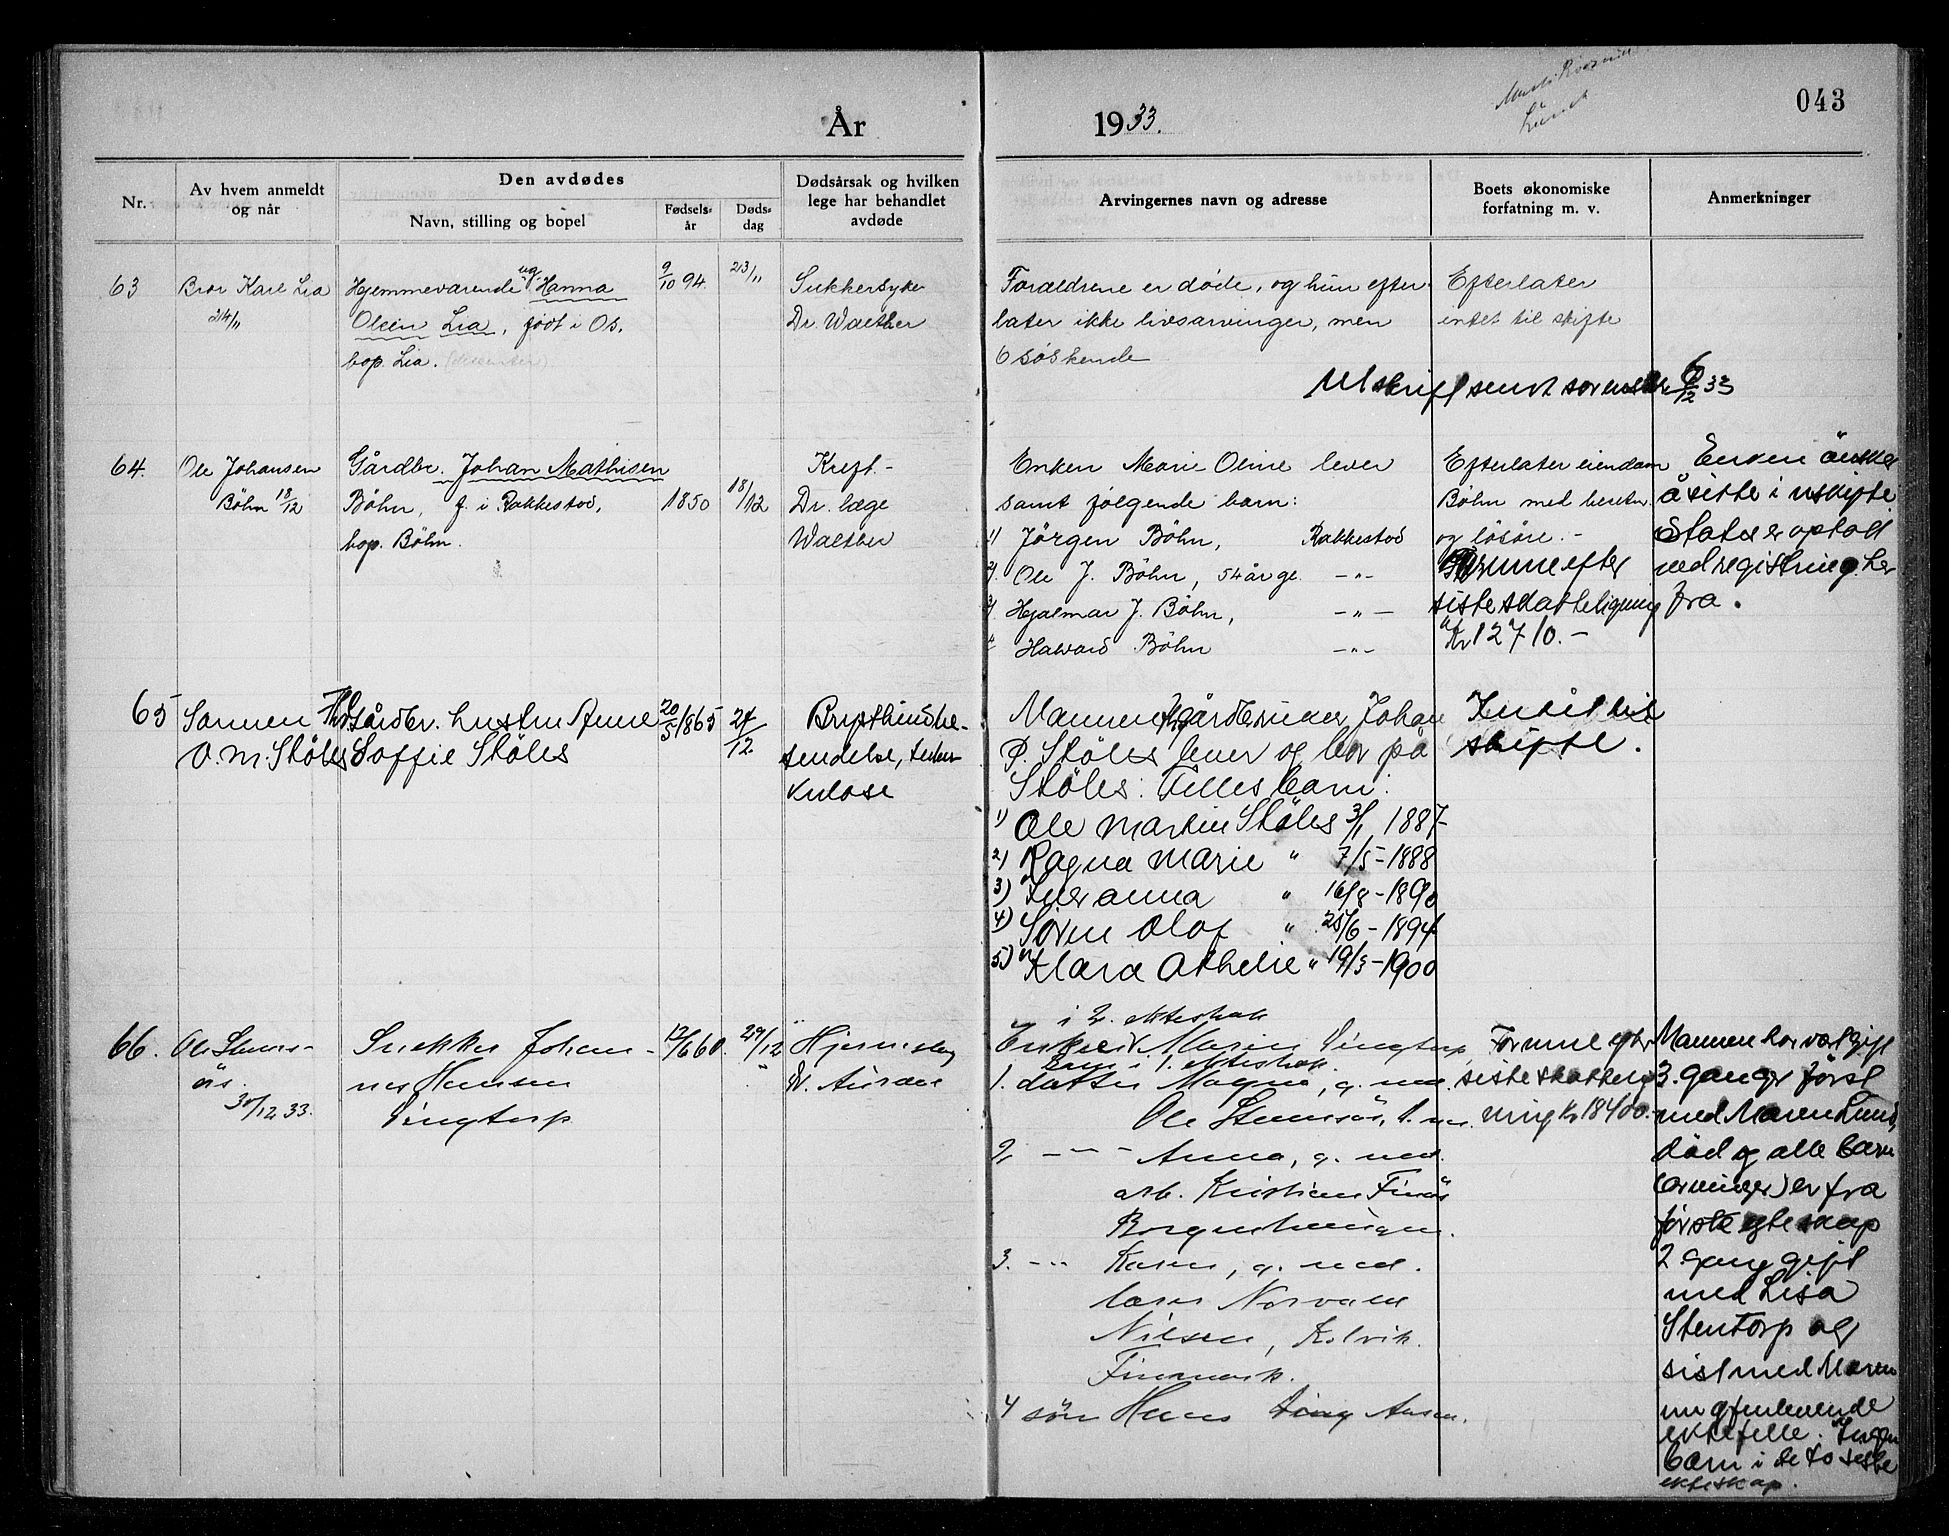 043
År
1933.
Nr.
Av hvem anmeldt og når
Den avdødes
Navn, stilling og bopel
Fødselsår
Dødsdag
Dødsårsak og hvilken lege har behandlet avdøde
Arvingernes navn og adresse
Boets økonomiske forfatning m. v.
Anmerkninger
63
Bror Karl Lia
24/11
Hjemmeværende ug. Hanna
Olsen Lia, født i Os.
bop. Lia.
9/10 94.
23/11
Sukkersyke
Dr. Walther
Forældrene er døde, og hun efter
later ikke livsarvinger, men
6 søskende
Efterlater
intet til skifte
Utskrift sendt sorenskr. 6/12 33
64.
Ole Johansen
Bøhn 18/12
Gårdbr. Johan Mathisen
Bøhn, f. i Rakkestad,
bop. Bøhn.
1850
18/12
Kreft -
Dr. læge
Walther
Enken Marie Oline lever
samt følgende barn:
1) Jørgen Bøhn, Rakkestad
2) Ole J. Bøhn, 54 år g. -"-
3) Hjalmar J. Bøhn, -"-
4 Halvard Bøhn -"-
Efterlater eiendom
Bøhn med besetn.
og løsøre. -
Formue efter
siste skatteligning
Kr 12710.-
Enken ønsker
å sitte i uskifte
Status er optatt
ved registring her
fra.
65
Sønnen
O. M. Støles
Gårdbr. hustru Anne
Soffie Støles
20/5 1865
24/12
Brysthinnebe-
tendelse, tuber
kulose
Mannen fhv gårdbruker Johan
P. Støles lever og bor på
Støles: Felles barn:
1) Ole Martin Støles 3/1 1887
2) Ragna Marie " 7/5-1888
3) Inferanna " 16/8-1890
4) Søren Olaf " 25/6-1894
5) Klara Othelie " 19/3-1900
Intet til
skifte.
66.
Ole Stems-
ås.
30/12 33.
Snekker Johan-
nes Hansen
Vingtorp
12/6 60.
29/12
Hjerneslag
Dr. Aursand
i 2. ekteskap
Enke Maren Vingtorp
barn i 1. ekteskap.
1. datter Magna, g. med
Ole Stemsås,
2. -"- Anna, g. med
arb. Kristian Finås
3. -"- Karen, g. med.
lærer Norvald
Nilsen, Kolvik
Finnmark.
4 søn Hans
Formue efter
siste skattelig
ning kr 18400.-
Mannen har vært gift
3. ganger først
med Maren Lund,
død og alle barn
(arvinger) er fra
første egteskap
2. gang gift
med Lisa
Stentorp og
sist med Maren
nu gjenlevende
ektefelle. Ingen
barn i de to siste
ekteskap.